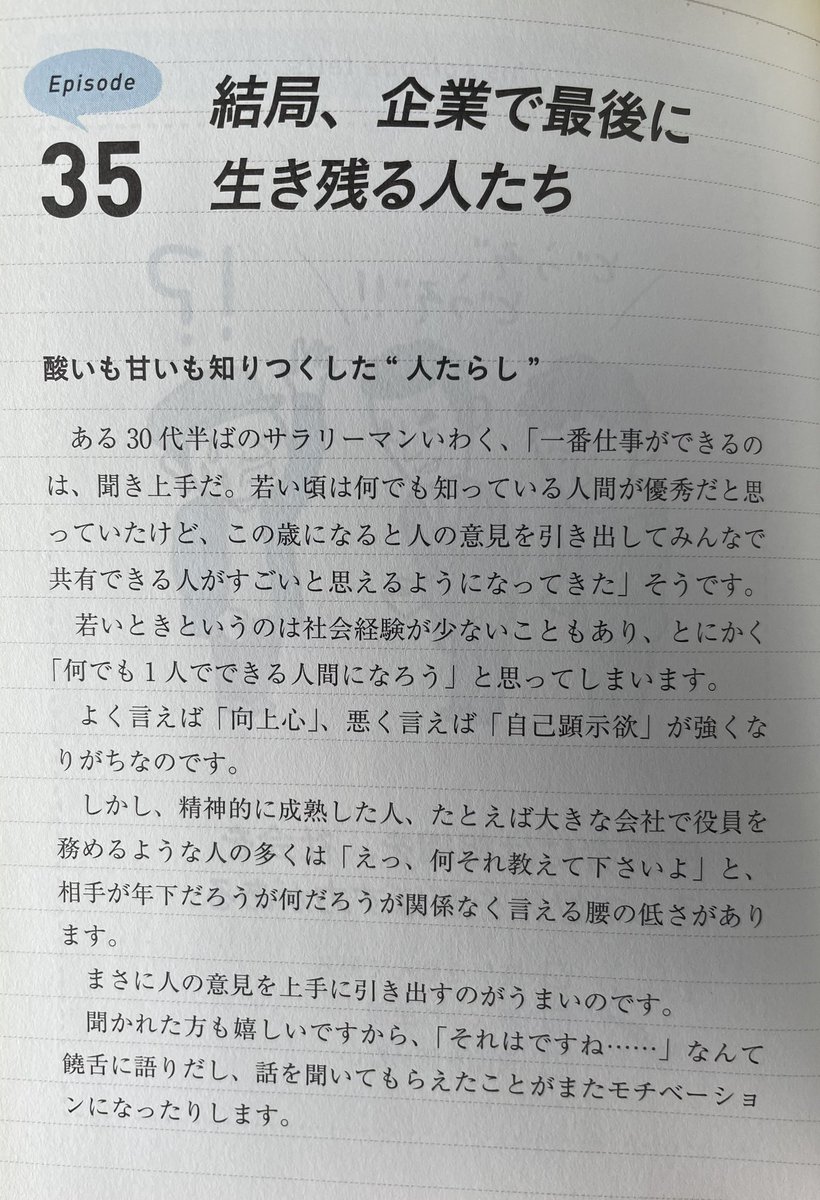 Episode
35
結局、企業で最後に
生き残る人たち
酸いも甘いも知りつくした“人たらし”
ある30代半ばのサラリーマンいわく、「一番仕事ができるの
は、聞き上手だ。若い頃は何でも知っている人間が優秀だと思
っていたけど、この歳になると人の意見を引き出してみんなで
共有できる人がすごいと思えるようになってきた」そうです。
若いときというのは社会経験が少ないこともあり、とにかく
「何でも1人でできる人間になろう」と思ってしまいます。
よく言えば「向上心」、悪く言えば「自己顕示欲」が強くな
りがちなのです。
しかし、精神的に成熟した人、たとえば大きな会社で役員を
務めるような人の多くは「えっ、何それ教えて下さいよ」と、
相手が年下だろうが何だろうが関係なく言える腰の低さがあり
ます。
まさに人の意見を上手に引き出すのがうまいのです。
聞かれた方も嬉しいですから、「それはですね……」なんて
饒舌に語りだし、話を聞いてもらえたことがまたモチベーショ
ンになったりします。